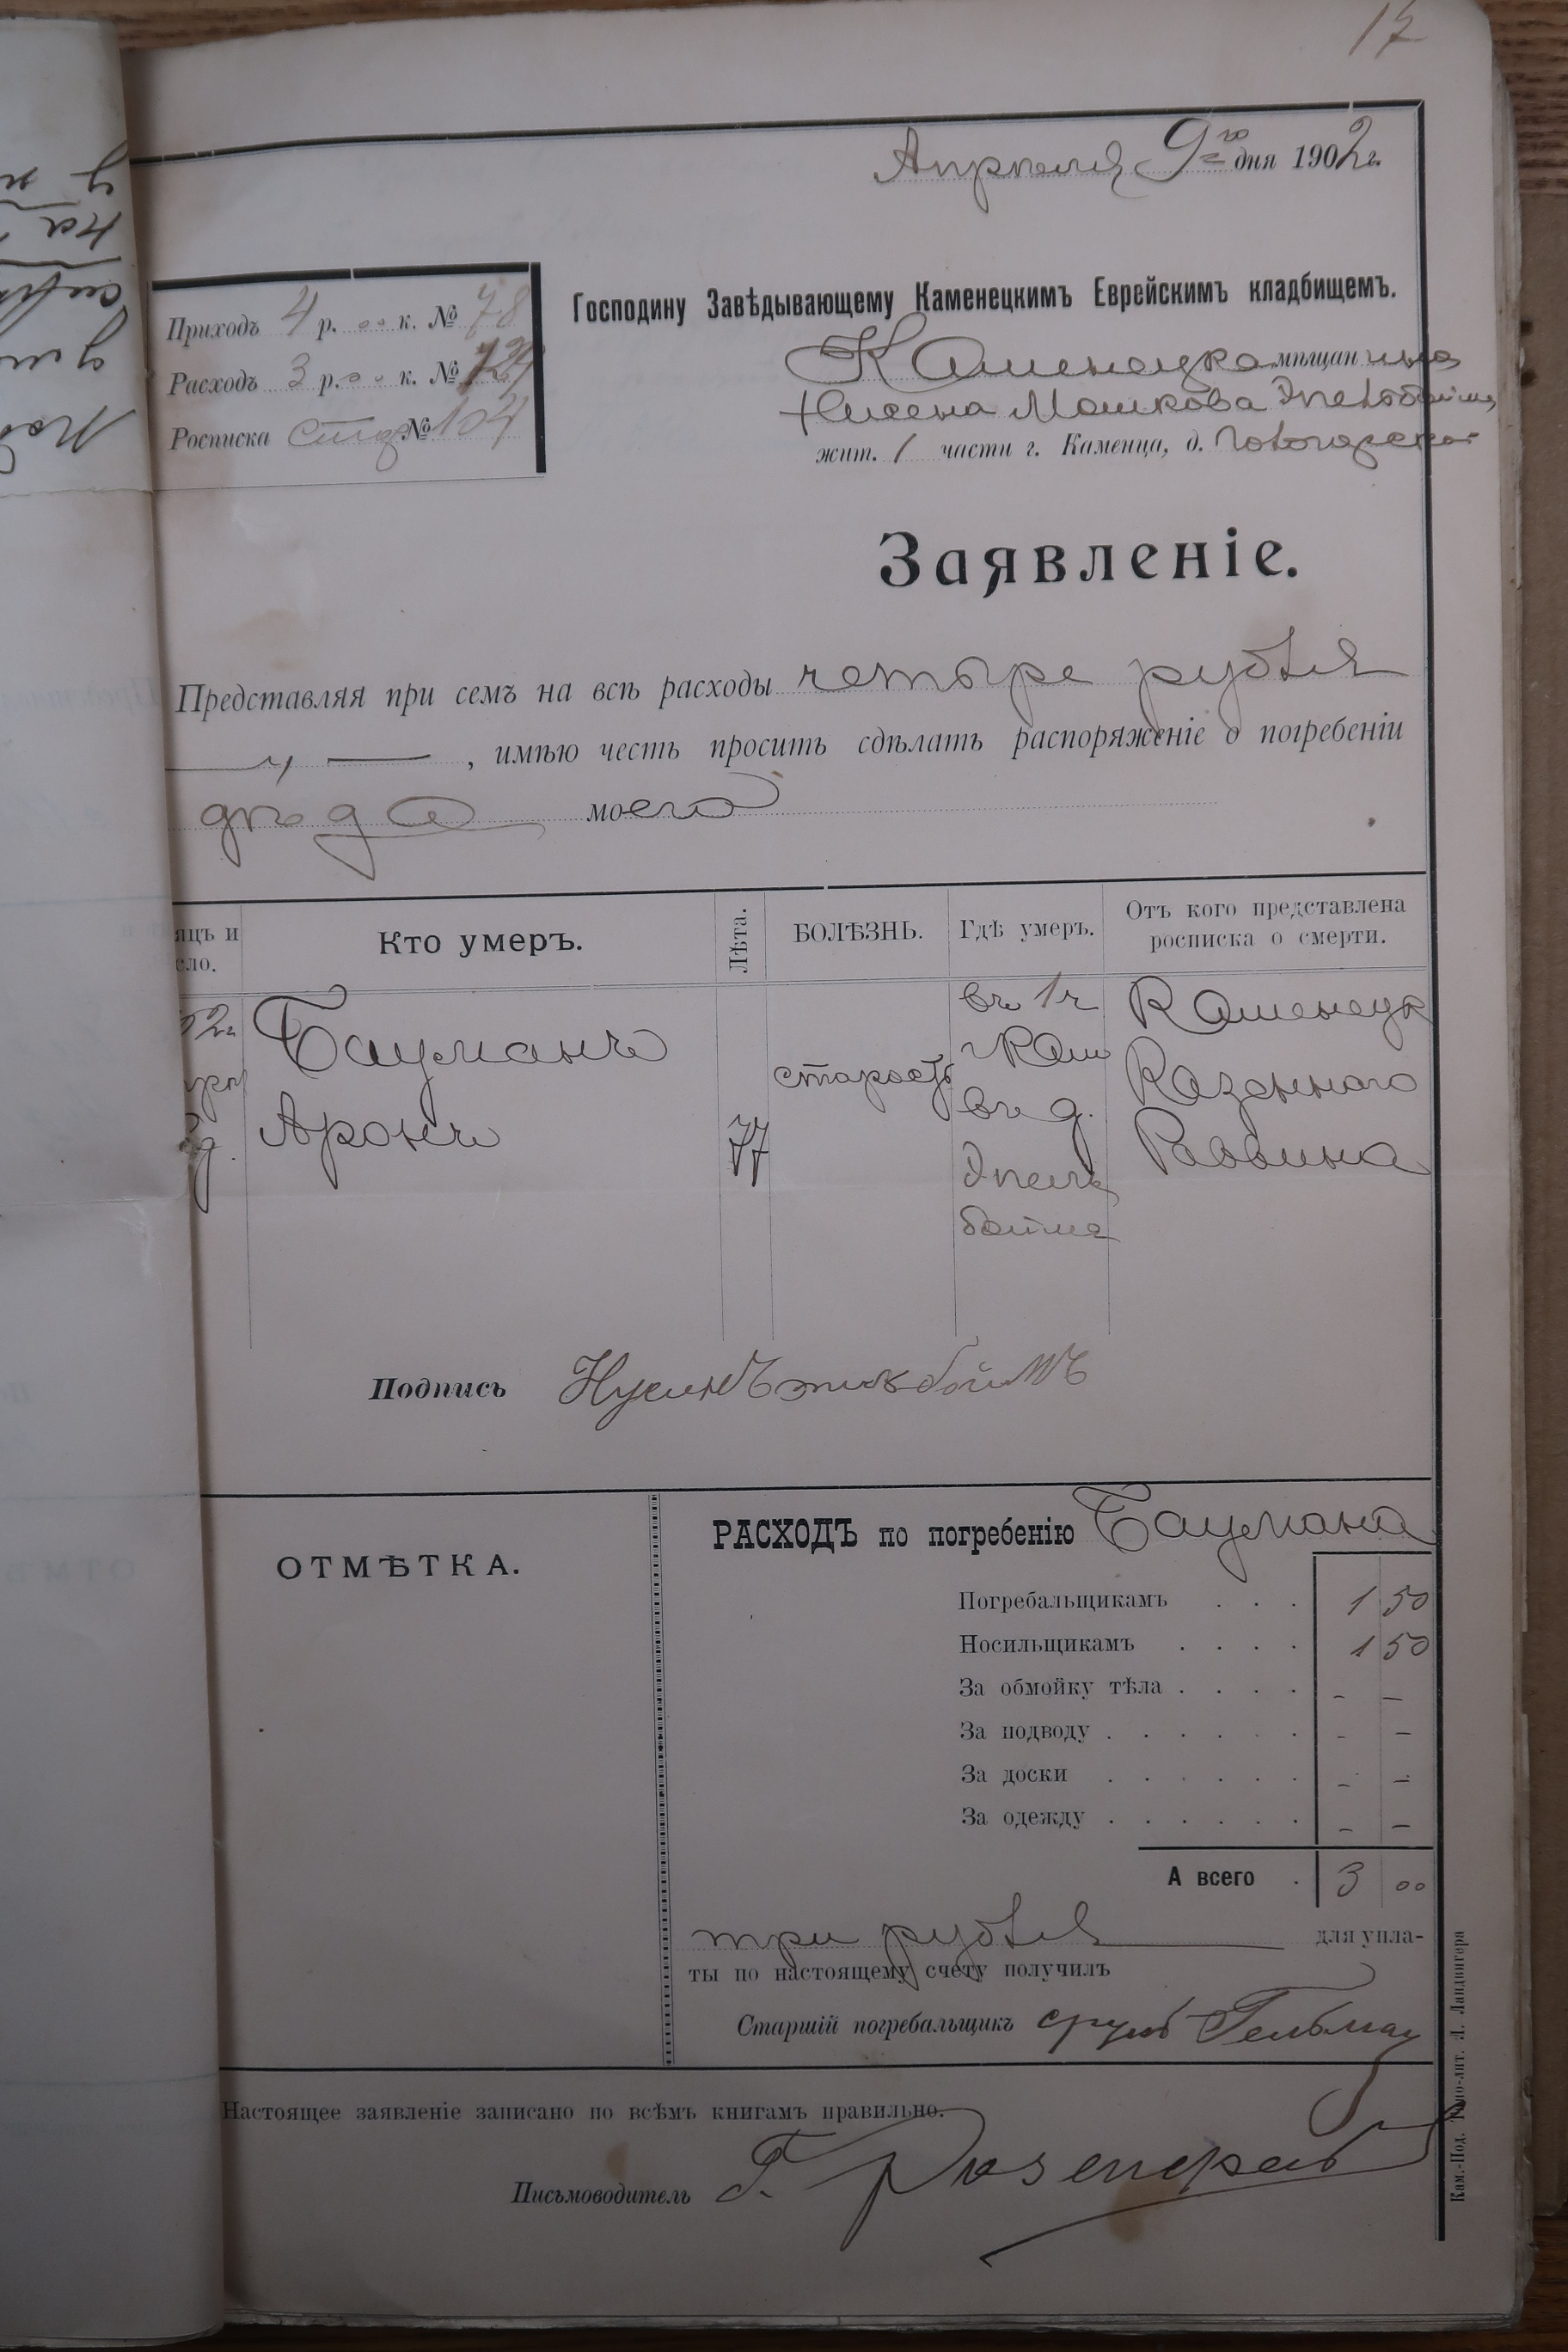 17
Апрѣля 9го дня 1902 г.
Приходъ 4 р. 00 к. № 78
Расходъ 3 р. 00 к. №
Росписка № 104
Господину Завѣдывающему Каменецкимъ Еврейскимъ кладбищемъ.
Каменецкаго мѣщанина
Нисена Мошкова
жит. 1 части г. Каменца, д.
Заявленіе.
Представляя при семъ на всѣ расходы четыре рубля
, имѣю честь просить сдѣлать распоряженіе о погребеніи
дѣда моего
яцъ и сло.
Кто умеръ.
Лѣта.
БОЛѢЗНЬ.
Гдѣ умеръ.
Отъ кого представлена росписка о смерти.
Бауманъ
Аронъ
77
старость
въ 1 ч
г Кам
въ д.
Эпель
бойма
Каменецк
Казеннаго
Раввина
Подпись
ОТМѢТКА.
РАСХОДЪ по погребенію Баумана
Погребальщикамъ . . . 1 50
Носильщикамъ . . . . 1 50
За обмойку тѣла . . . . - —
За подводу . . . . . . - —
За доски . . . . . . - —
За одежду . . . . . . - —
А всего . 3 00
три рубля для упла-
ты по настоящему счету получилъ
Старшій погребальщикъ сруль Гельман
Настоящее заявленіе записано по всѣмъ книгамъ правильно.
Письмоводитель Г.
Кам.-Под. Типо-лит. Л. Ландвигера